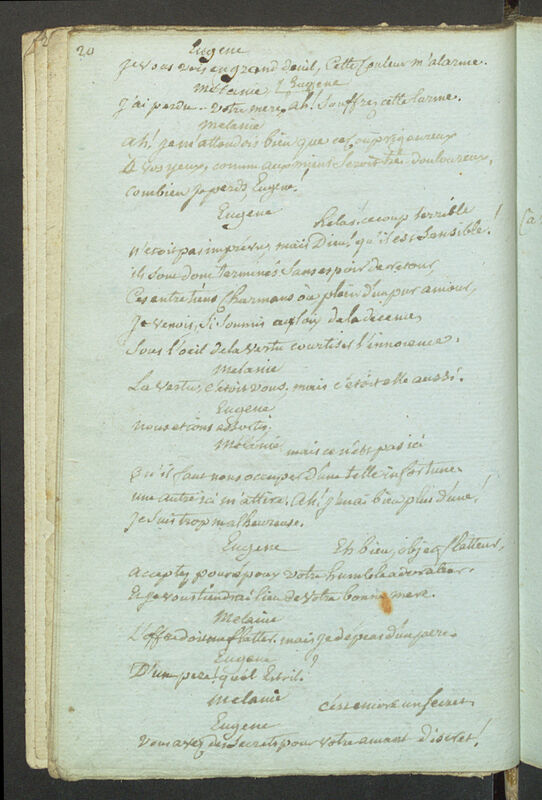 20
Eugene
Je vous vois en grand deuil, Cette Couleur m'alarme.
Melanie Eugene
J'ai perdu .. Votre mere, ah! Souffrez cette larme.
Melanie
Ah! je m'attendois bien que ce coup rigoureux
De vos yeux, comme aux miens Seroit tres douloureux,
Combien je perds, Eugene.
Eugene
helas! ce coup terrible
n'etoit pas imprevu, mais Dieu! qu'il est Sensible!
ils Sont donc terminés Sans espoir de retour,
Ces entretiens Charmans où plein d'un pur amour,
Je venois, Si Soumis aux loix de la decence,
Sous l'oeil de la vertu courtiser l'innocence.
Melanie
La vertu, c'etoit vous, mais c'étoit elle aussi.
Eugene
nous etions assortis.
Melanie mais ce n'est pas ici
qu'il faut nous occuper d'une telle infortune
une autre ici m'attire. Ah! j'en ai bien plus d'une!
Je Suis trop malheureuse.
Eugene Eh bien, objet flatteur,
acceptez pour époux votre humble adorateur.
Et je vous tiendrai lieu de Votre bonne mere.
Melanie
L'offre doit me flatter. mais je dépens d'un pere.
Eugene
D'un pere! quel Est-il?
Melanie c'est encore un Secret.
Eugene
Vous avez des Secrets pour votre amant discret!